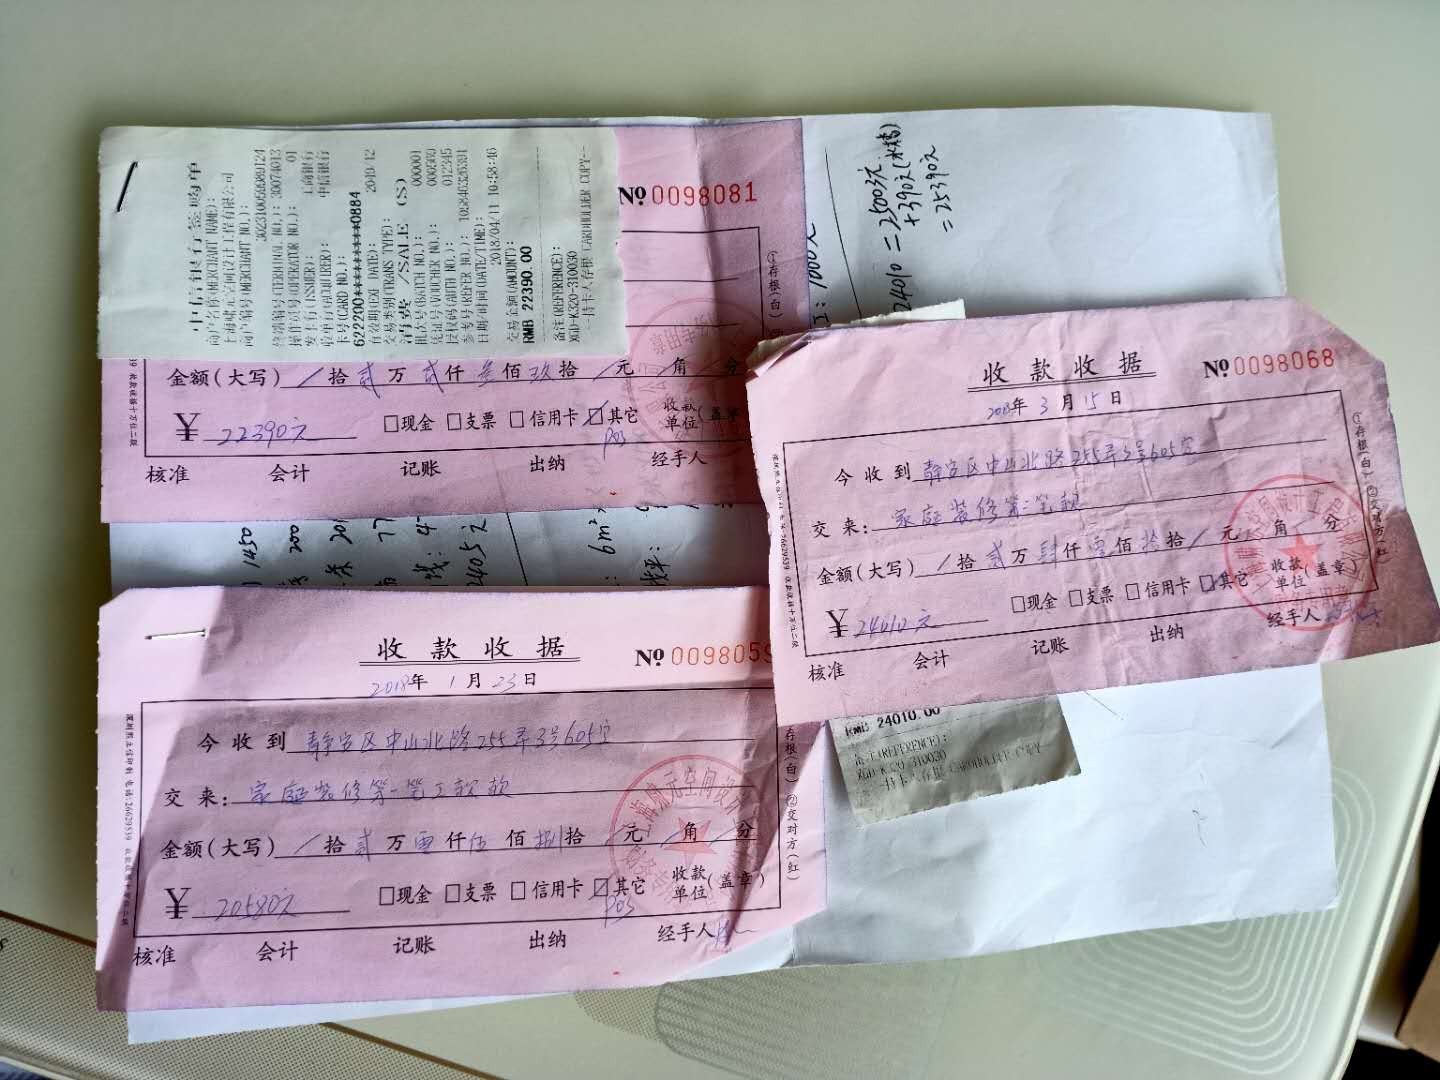 中信银行签购单
商户名称(MERCHANT NAME):
上海啸元空间设计工程有限公司
商户编号(MERCHANT NO.):
终端编号(TERMINAL NO.): 30074013
操作员号(OPERATOR NO.): 01
发卡行(ISSUER): 工商银行
收单行(ACQUIRER): 中信银行
卡号(CARD NO.):
622200*********0884
有效期(EXP DATE): 2049/12
交易类别(TRANS TYPE):
消费 /SALE (S)
批次号(BATCH NO.): 000001
凭证号(VOUCHER NO.):
授权码(AUTH NO.): 012345
参考号(REFER NO.):
日期/时间(DATE/TIME):
2018/04/11 10:58:46
交易金额(AMOUNT):
RMB 22390.00
备注(REFERENCE):
XGD-K320-310030
--持卡人存根 CARDHOLDER COPY--
№ 0098081
金额(大写) / 拾 贰 万 贰 仟 叁 佰 玖 拾 / 元 / 角 / 分
¥ 22390元 现金 支票 信用卡 其它 收款单位(盖章)
POS
核准 会计 记账 出纳 经手人
①存根(白)
工: 1000元
24010 = 25000元
+390元(水槽)
= 25390元
1450
200
2405元
6m²
收款收据 № 0098068
2018年 3 月 15 日
今收到 静安区中山北路255弄3号605室
交来: 家庭装修第二笔款
金额(大写) / 拾 贰 万 肆 仟 零 佰 拾 拾 / 元 角 分
¥ 24010元 现金 支票 信用卡 其它 收款单位(盖章)
核准 会计 记账 出纳 经手人
①存根(白) ②交对方(红)
RMB 24010.00
备注(REFERENCE):
XGD-K320-310030
--持卡人存根 CARDHOLDER COPY
收款收据 № 0098059
2018年 1 月 23 日
今收到 静安区中山北路255弄3号605室
交来: 家庭装修第一笔工款款
金额(大写) / 拾 贰 万 零 仟 伍 佰 捌 拾 / 元 / 角 / 分
¥ 20580元 现金 支票 信用卡 其它 收款单位(盖章)
POS
核准 会计 记账 出纳 经手人
存根(白) ②交对方(红)